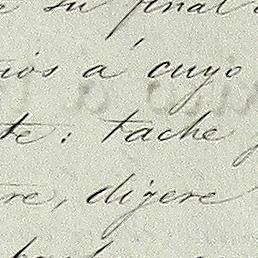 su final
á cuyo
te: tache
re, digere